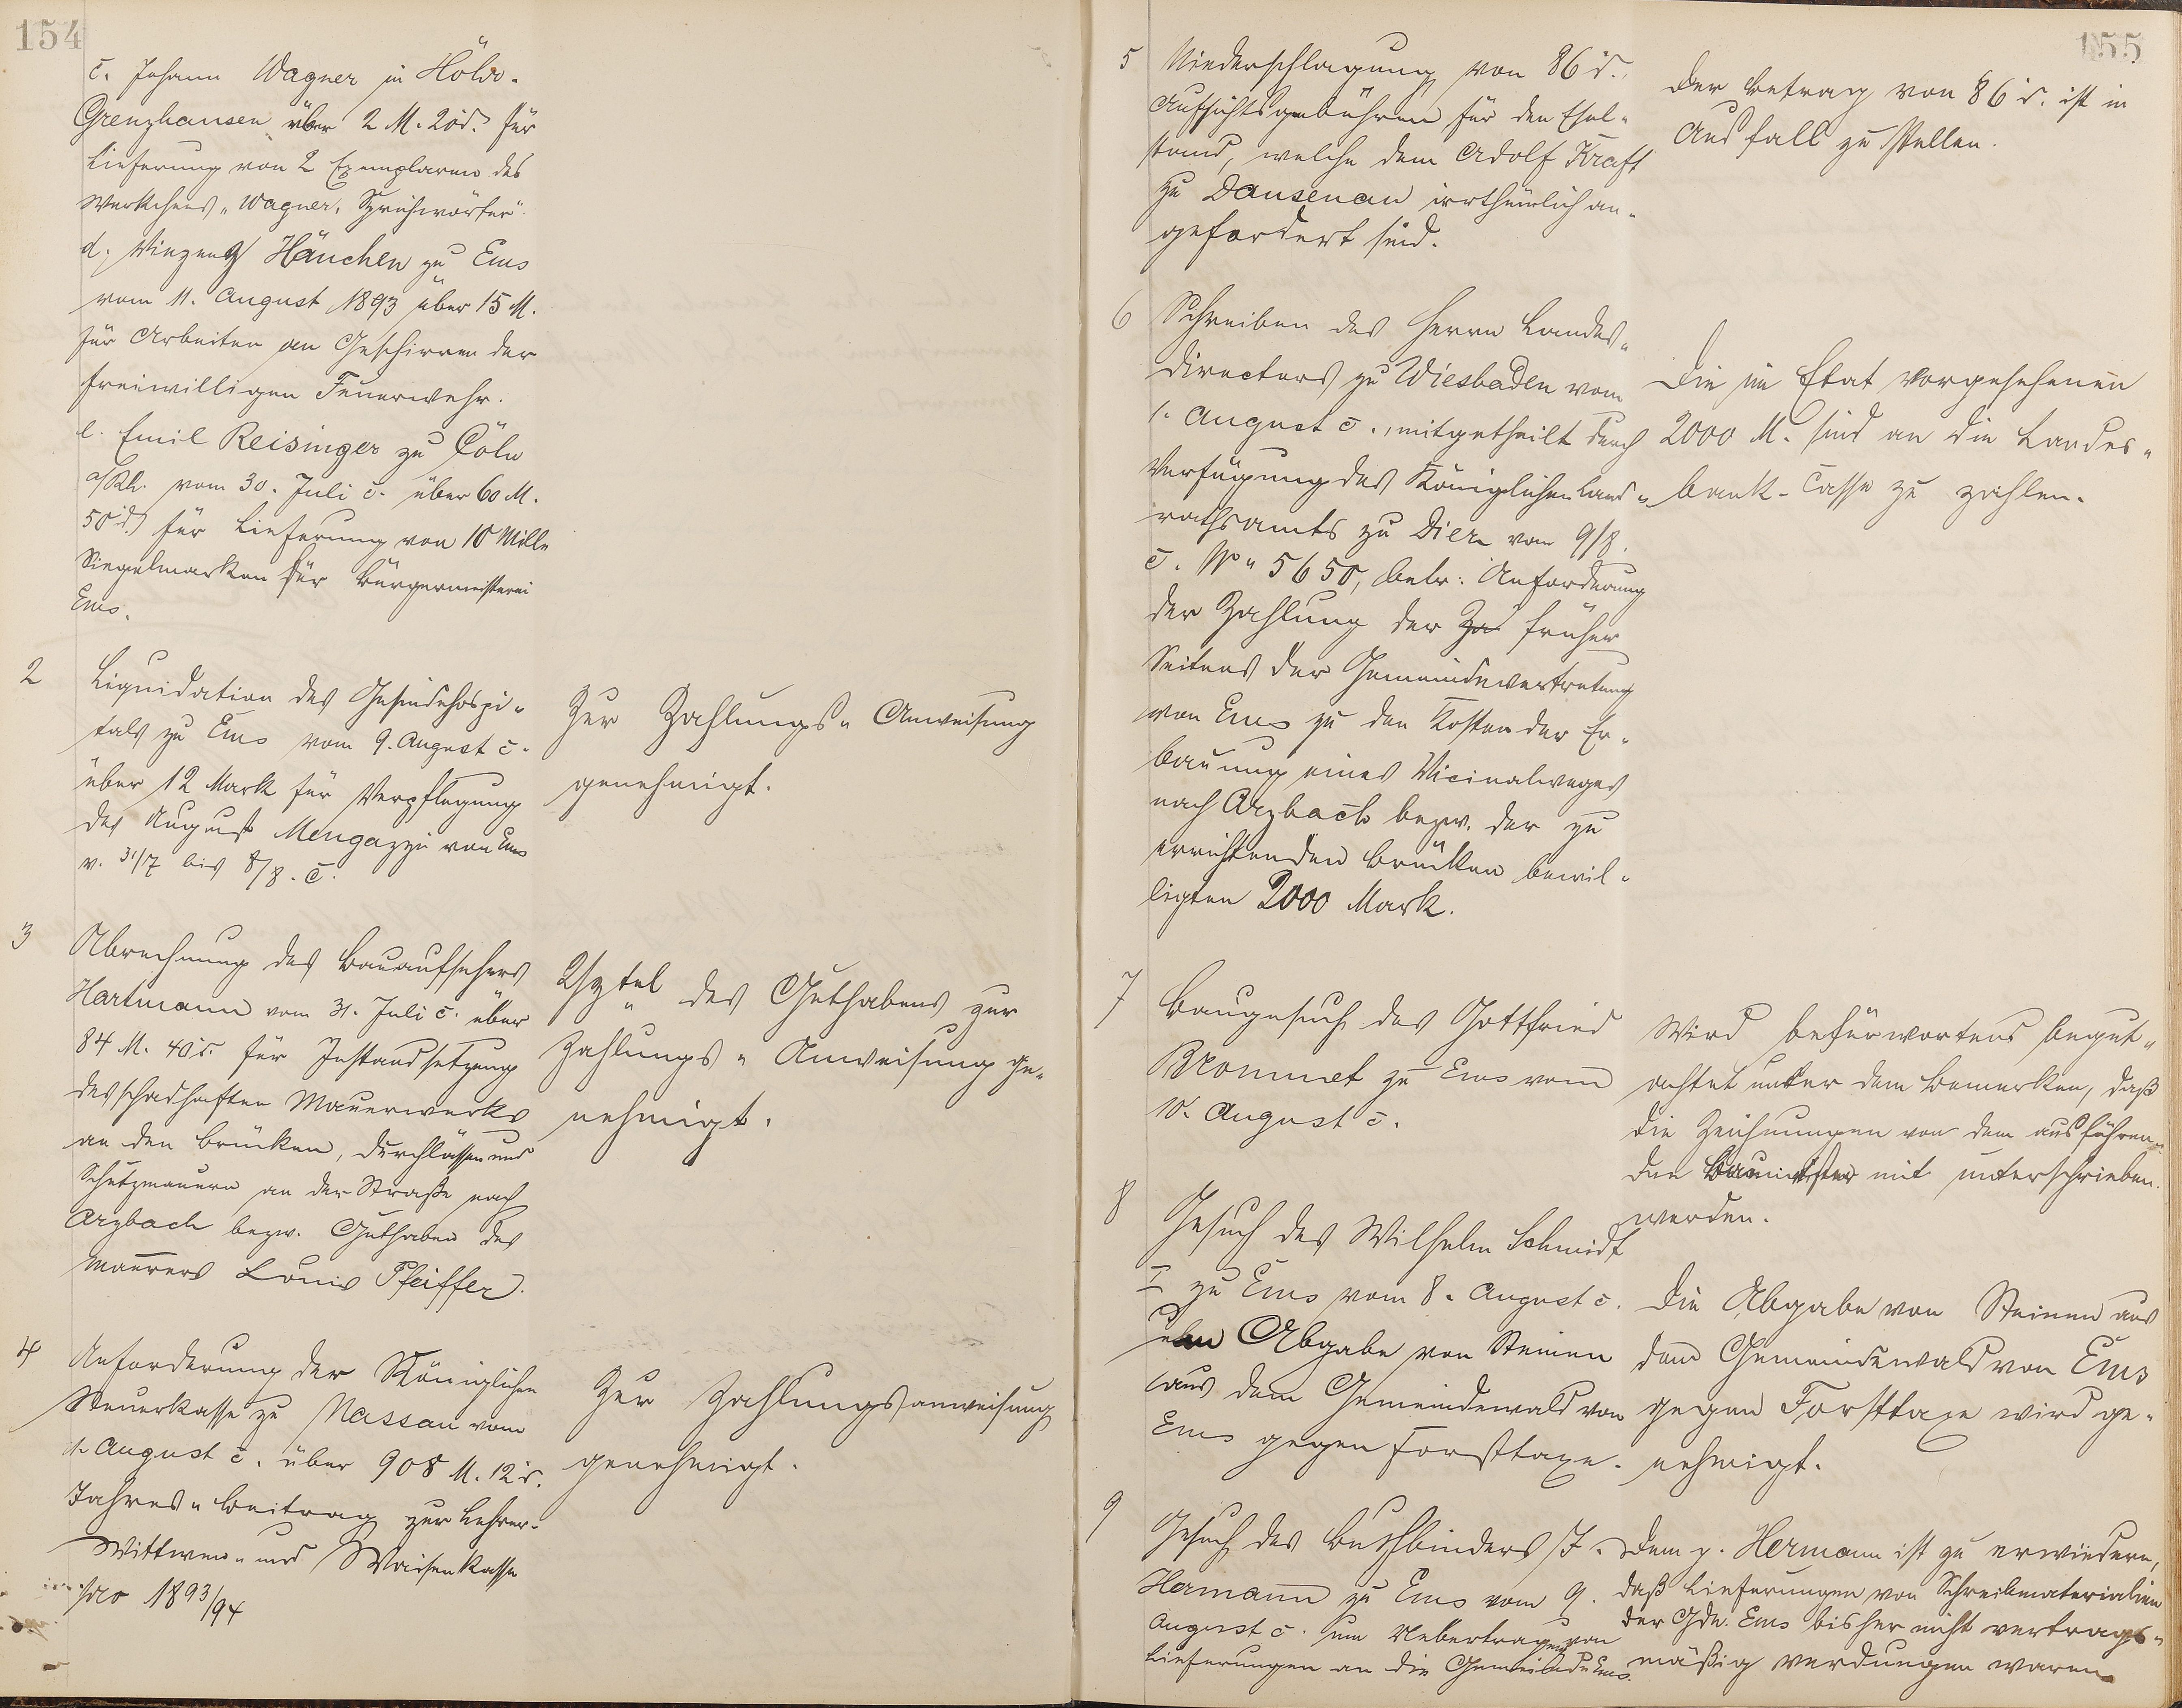 154
c. Johann Wagner in Höhr-
Grenzhausen über 2 M. 20 d. für
Lieferung von 2 Exemplaren des
Werkchens „Wagner, Sprichwörter".
d. Vinzenz Hänchen zu Ems
vom 11. August 1893 über 15 M.
für Arbeiten an Geschirren der
freiwilligen Feuerwehr.
e. Emil Reisinger zu Cöln
a/Rh. vom 30. Juli c. über 60 M.
50 d. für Lieferung von 10 Mille
Siegelmarken für Bürgermeisterei
Ems.
2 Liquidation des Gesindehospi-
tals zu Ems vom 9. August c.
über 12 Mark für Verpflegung
des August Mengazzi von Ems
v. 31/7 bis 8/8. c.
Zur Zahlungs-Anweisung
genehmigt.
3 Abrechnung des Bauaufsehers
Hartmann vom 31. Juli c. über
84 M. 40 d. für Instandsetzung
des schadhaften Mauerwerks
an den Brücken, Durchlässen und
Schutzmauern an der Straße nach
Arzbach bezw. Guthaben des
Maurers Louis Pfeiffer.
des Guthabens zur
Zahlungs-Anweisung ge-
nehmigt.
4 Anforderung der Königlichen
Steuerkasse zu Nassau vom
1. August c. über 908 M. 12 d.
Jahres-Beitrag zur Lehrer-
Wittwen- und Waisenkasse
pro 1893/94
Zur Zahlungsanweisung
genehmigt.
155
5 Niederschlagung von 86 d.
Aufsichtsgebühren für den Esel-
stand, welche dem Adolf Kraft
zu Dausenau irrthümlich an-
gefordert sind.
Der Betrag von 86 d. ist in
Ausfall zu stellen.
6 Schreiben des Herrn Landes-
directors zu Wiesbaden vom
1. August c., mitgetheilt durch
Verfügung des Königlichen Land-
rathsamts zu Diez vom 9/8.
c. No 5650, betr: Anforderung
der Zahlung der Za früher
Seitens der Gemeindevertretung
von Ems zu den Kosten der Er-
bauung eines Vicinalweges
nach Arzbach bezw. der zu
errichtenden Brücken bewil-
ligten 2000 Mark.
Die im Etat vorgesehenen
2000 M. sind an die Landes-
bank-Casse zu zahlen.
7 Baugesuch des Gottfried
Brommet zu Ems vom
10. August c.
Wird befürwortend begut-
achtet unter dem Bemerken, daß
die Zeichnungen von dem ausführen-
den Baumeister mit unterschrieben
werden.
8 Gesuch des Wilhelm Schmidt
I zu Ems vom 8. August c.
um Abgabe von Steinen
aus dem Gemeindewald von
Ems gegen Forsttaxe.
Die Abgabe von Steinen aus
dem Gemeindewald von Ems
gegen Forsttaxe wird ge-
nehmigt.
9 Gesuch des Buchbinders J.
Hermann zu Ems vom 9.
August c. um Uebertragung von
Lieferungen an die Gemeinde Ems.
Dem p. Hermann ist zu erwiedern,
daß Lieferungen von Schreibmaterialien
der Gde. Ems bisher nicht vertrags-
mäßig verdungen waren